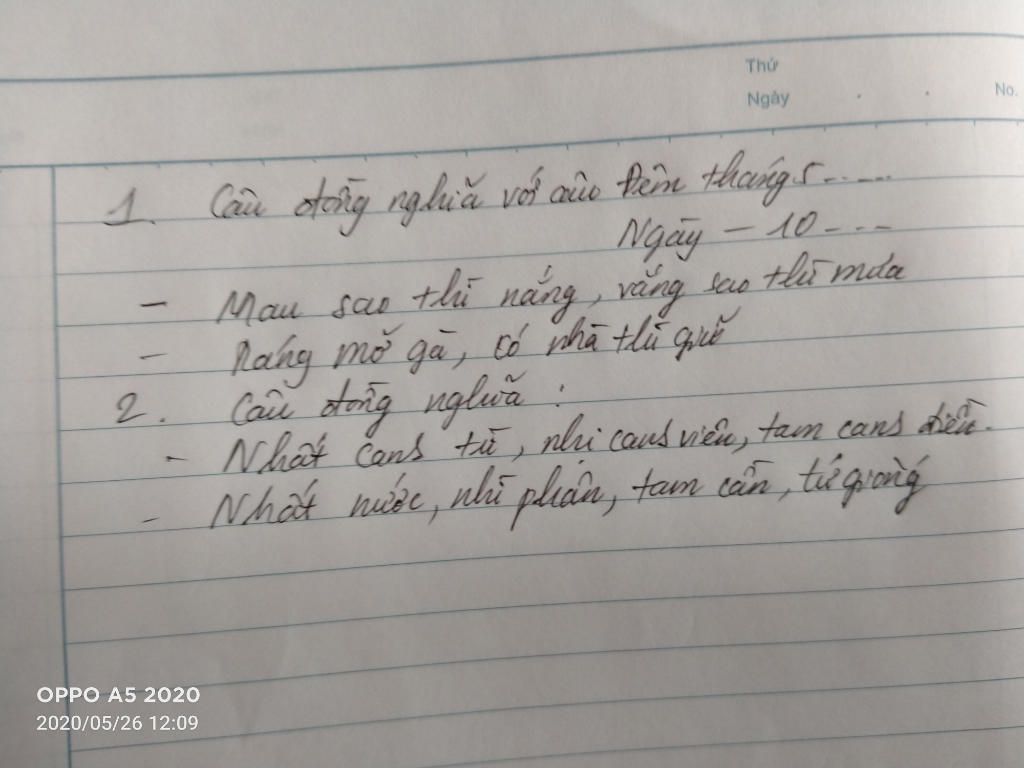 Thứ
Ngày
No.
1. Câu đồng nghĩă với câu Đêm tháng 5.....
Ngày - 10 ---
- Mau sao thì nắng, vắng sao thì mưa
- Ráng mỡ gà, có nhà thì giữ
2. Câu đồng nghĩă :
- Nhất cans trì, nhị cans viên, tam cans điền.
- Nhất nước, nhì phân, tam cần, tứ giống
OPPO A5 2020
2020/05/26 12:09